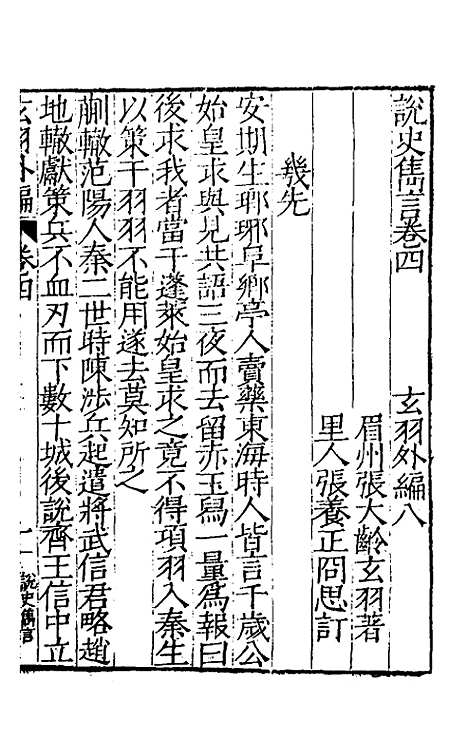 說史雋言卷四　玄羽外編八
眉州張大齡玄羽著
里人張養正冏思訂
幾先
安期生瑯琊阜鄉亭人賣藥東海時人皆言千歲公
始皇求與見共語三夜而去留赤玉舄一量為報曰
後求我者當于蓬萊始皇求之竟不得項羽入秦生
以策干羽羽不能用遂去莫知所之
蒯轍范陽人秦二世時陳涉兵起遣將武信君略趙
地轍獻策兵不血刃而下數十城後說齊王信中立
玄羽外編　卷四　一　說史雋言